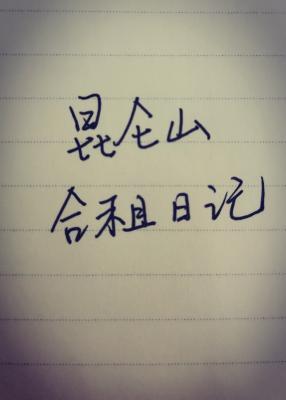 昆仑山
合租日记